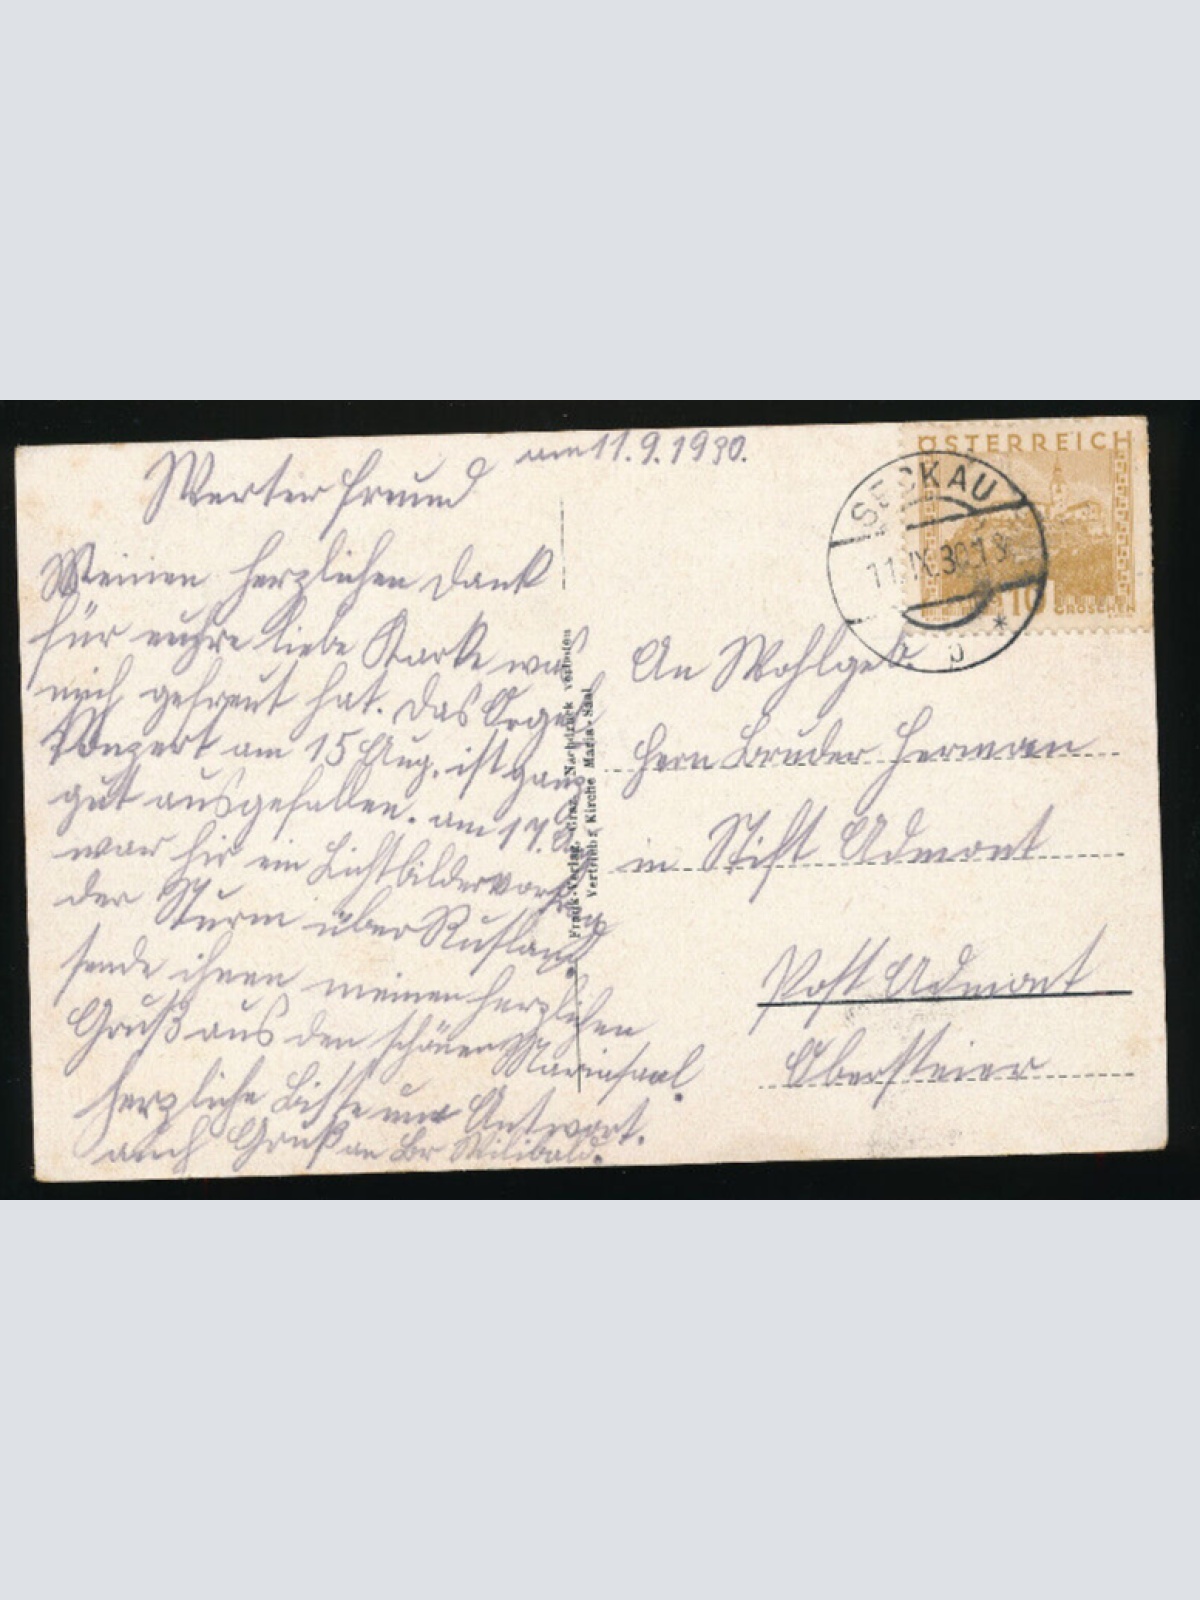 am 11.9.1930.
Werter Freund
Meinen herzlichen Dank
für euhre liebe Karte was
mich gefreut hat. Das Orgel
Konzert am 15 Aug. ist ganz
gut ausgefallen. am 17.
war hir ein Lichtbildervortrag
der Sturm über Rusland
sende ihnen meinen herzlichen
Gruß aus den schönen Mariasaal.
herzliche Bitte um Antwort.
auch Gruß an Br Wilibald.
Frank-Verlag, Graz. Nachdruck verboten
Vertrieb: Kirche Maria-Saal
ÖSTERREICH
10 GROSCHEN
SECKAU
11.IX.30
*
b
An Wohlgeb.
Hern Bruder Herman
in Stift Admont
Post Admont
Obersteier